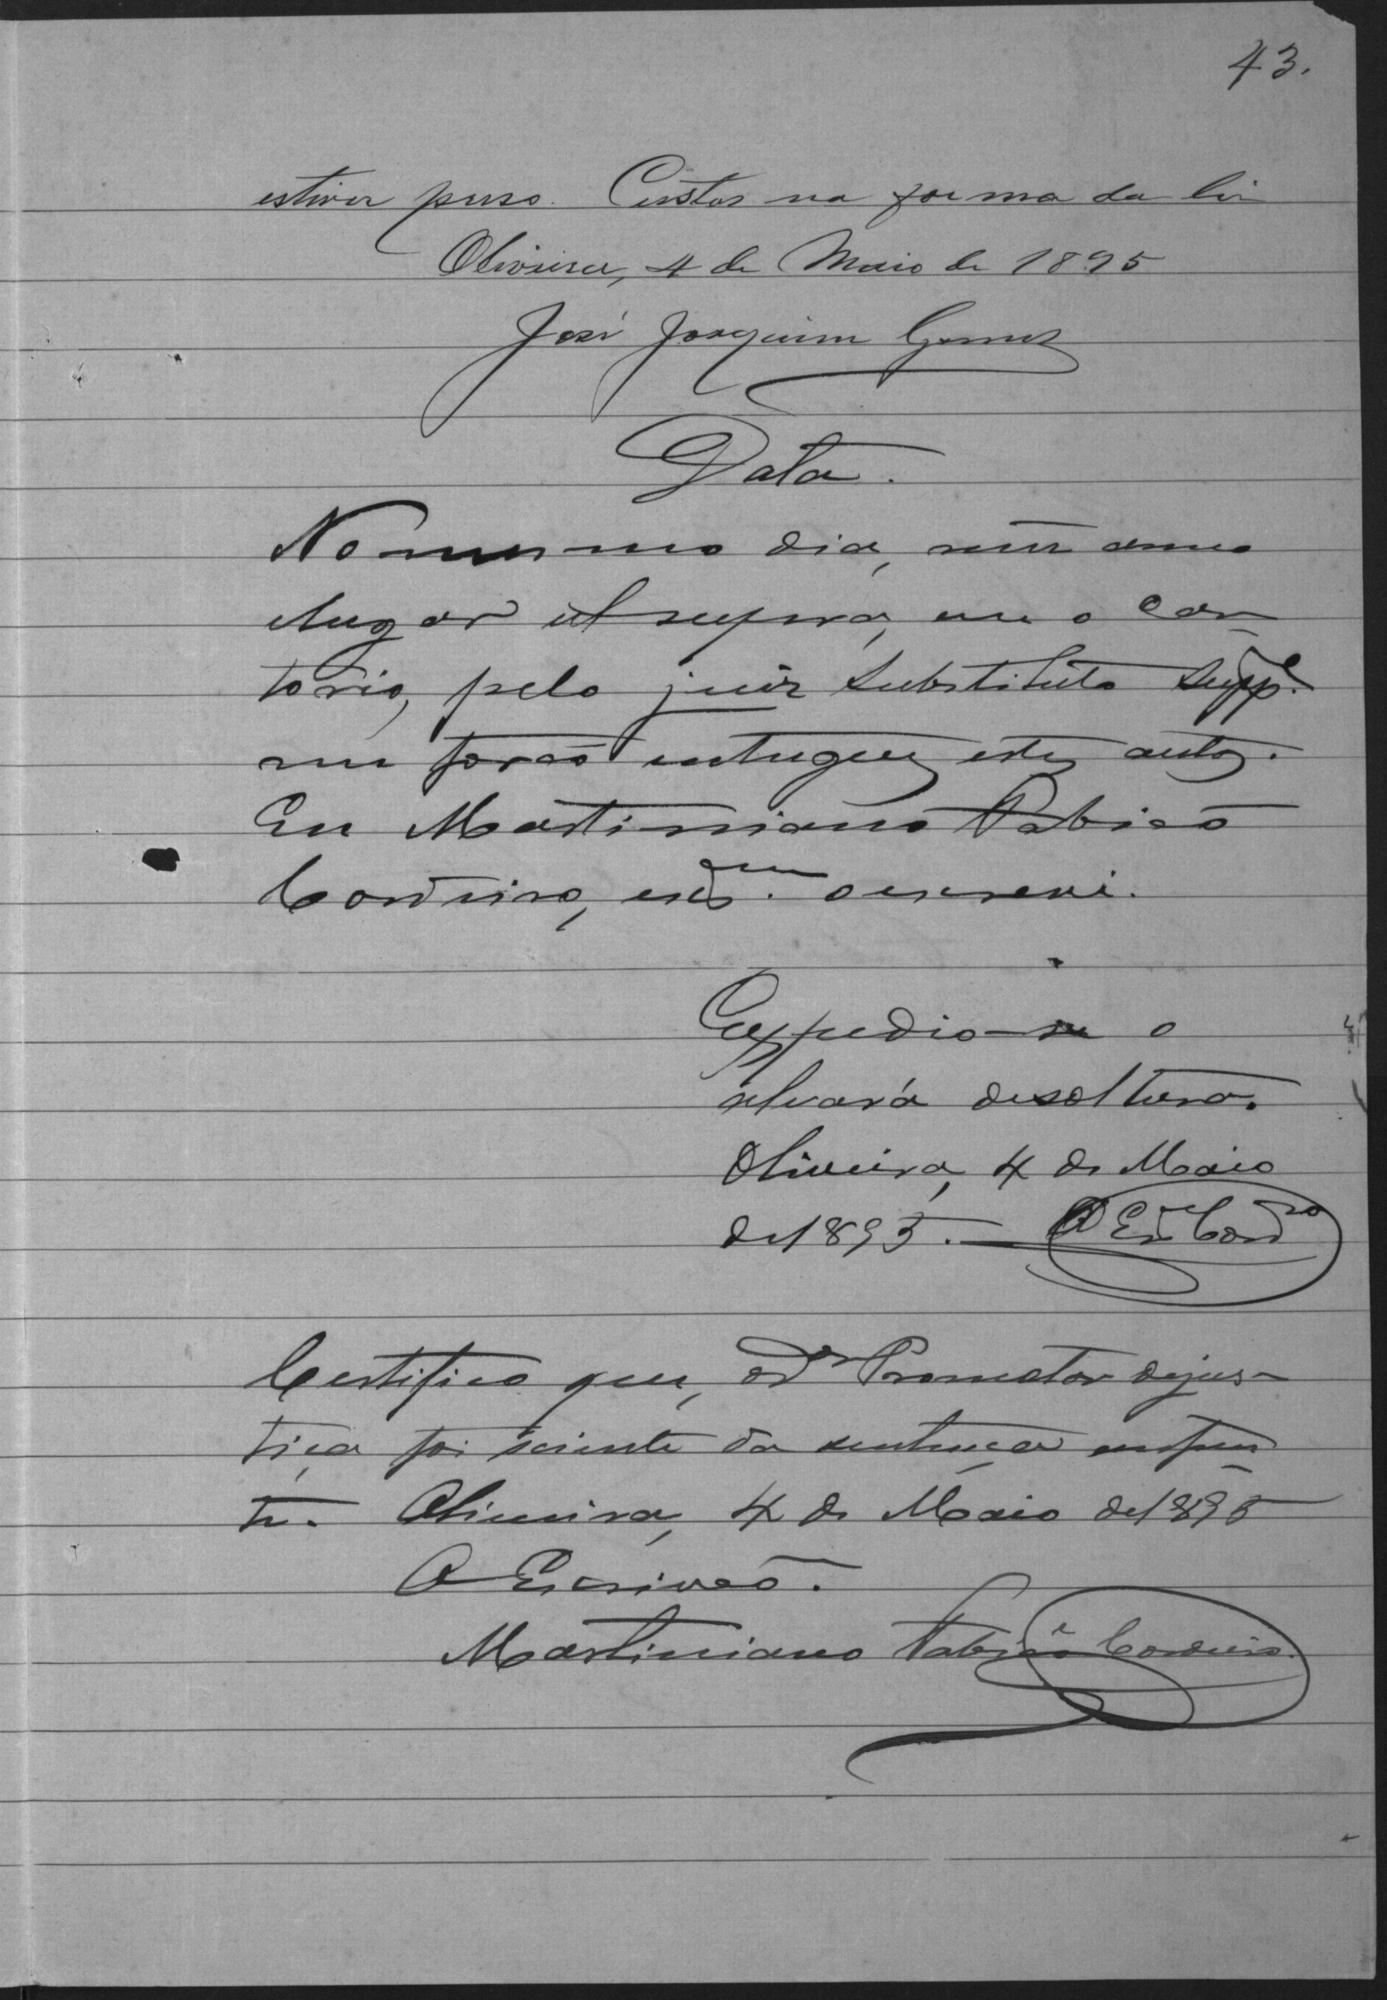 43.
estiver preso. Custas na forma da lei
Oliveira, 4 de Maio de 1895
José Joaquim Gomes
Data.
No mesmo dia, mez anno
e lugar ut supra, em o car
torio, pelo juiz substituto supp.e
me forão entregues estes autos.
Eu Martiniano Fabião
Cordeiro, escr.am o escrevi.
Expedio-se o
alvará de soltura.
Oliveira, 4 de Maio
de 1895. O Esc.m Cord.ro
Certifico que, o Dr Promotor de jus-
tiça foi sciente da sentença
Oliveira, 4 de Maio de 1895
O Escrivão.
Martiniano Fabião Cordeiro.